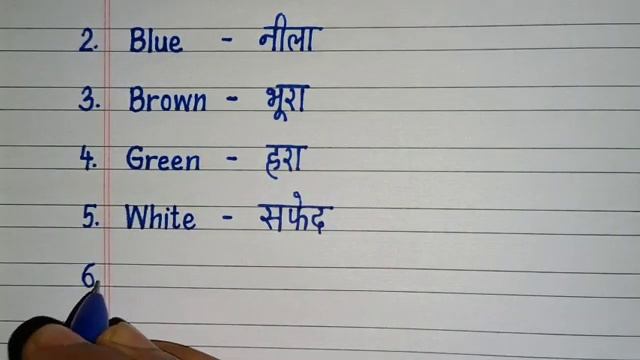 2. Blue - नीला
3. Brown - भूरा
4. Green - हरा
5. White - सफेद
6.